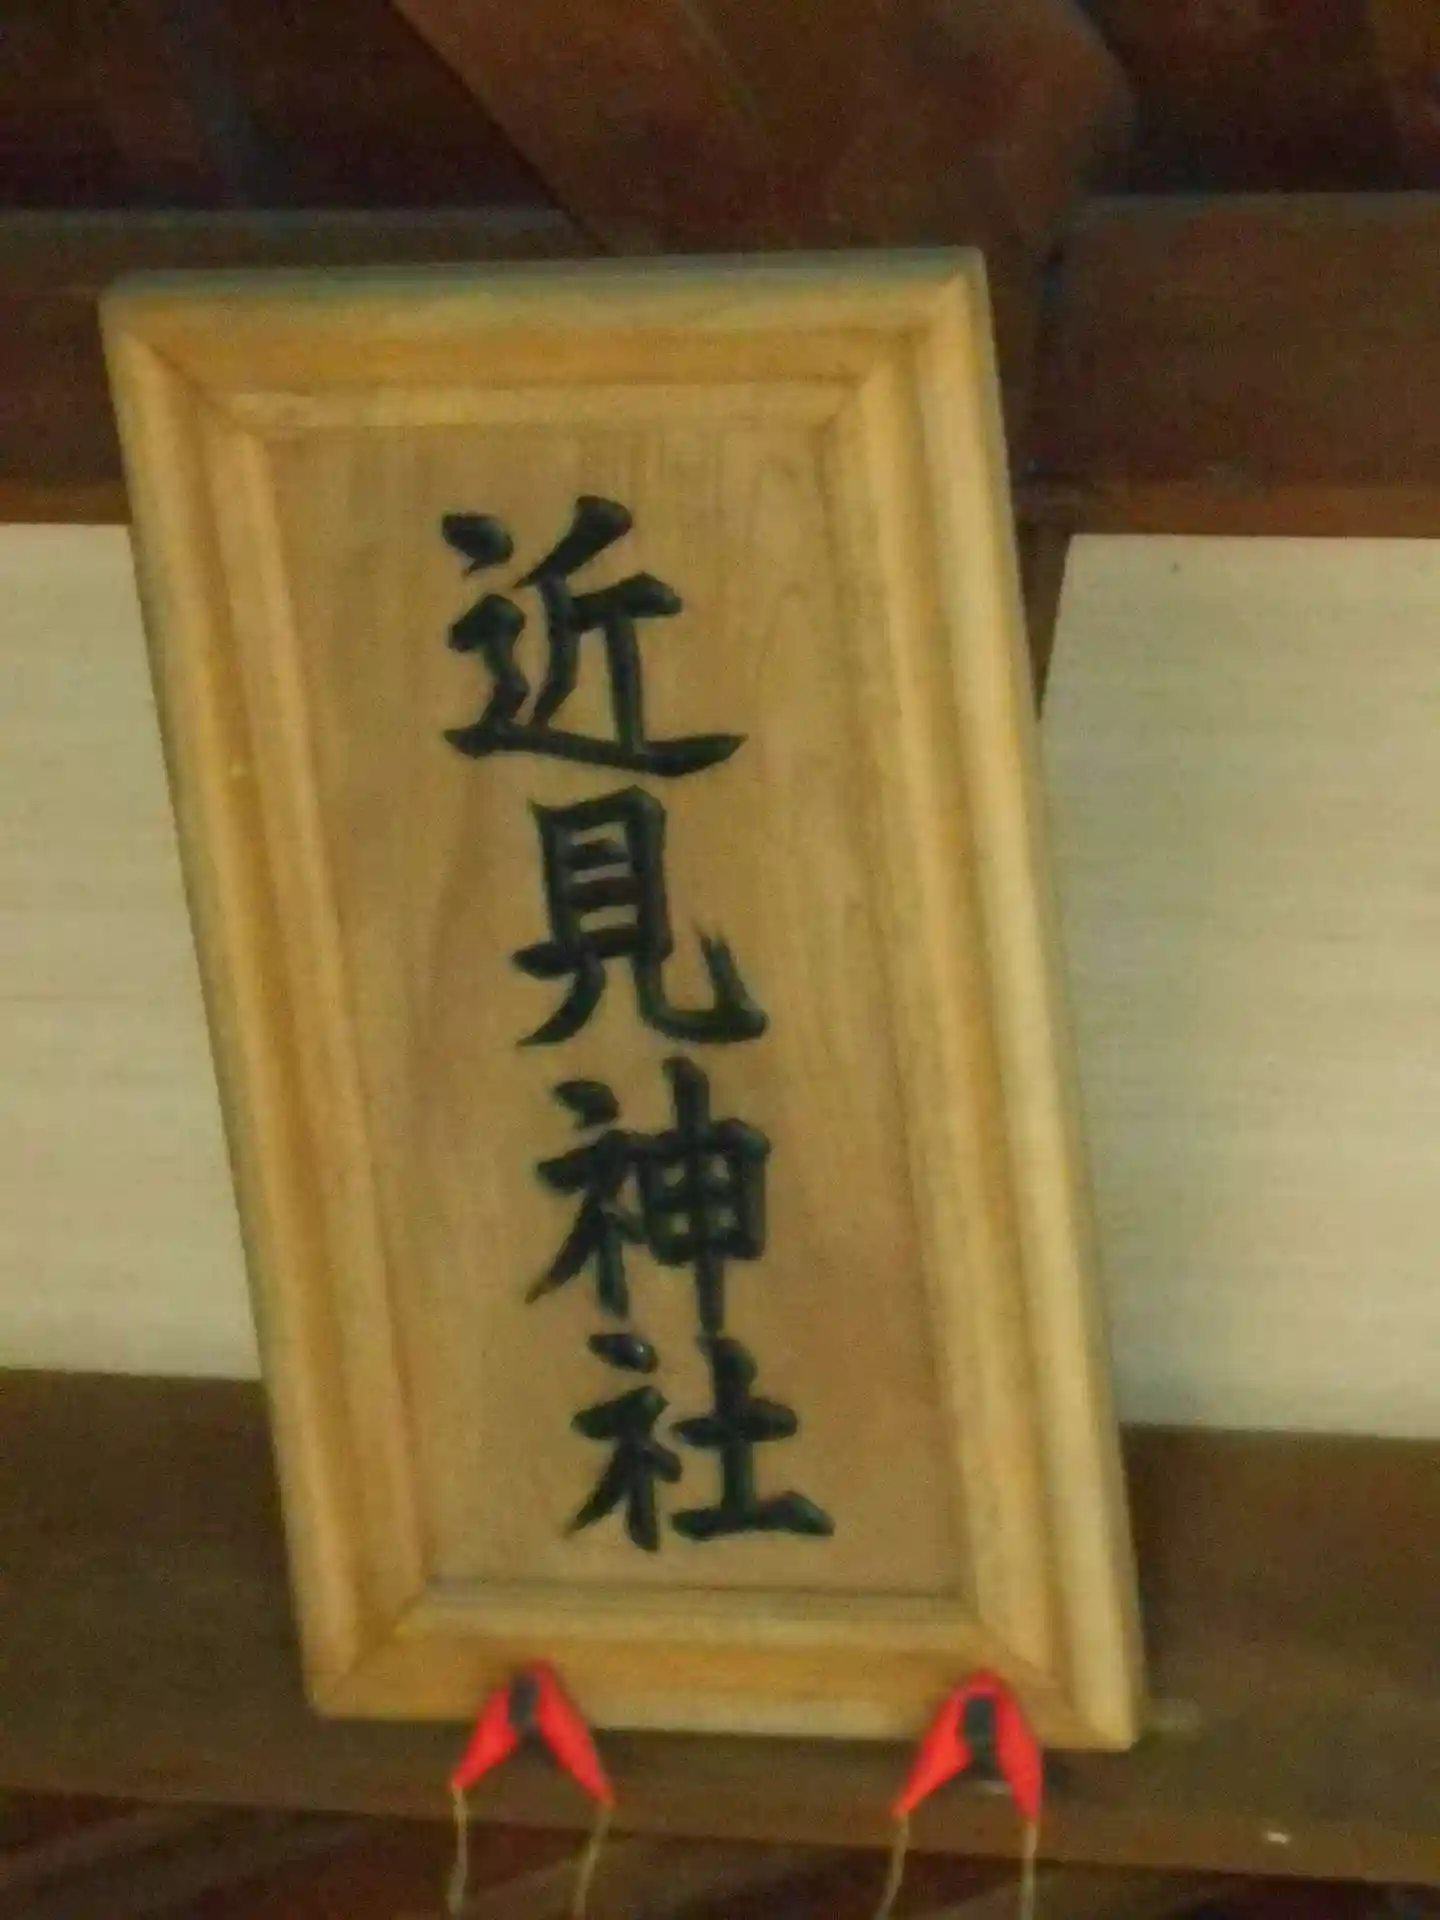 近見神社